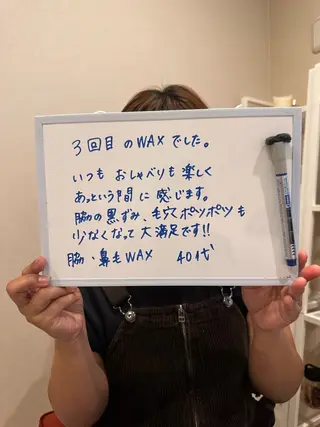 3回目のWAXでした。
いつも おしゃべりも楽しく
あっという間に感じます。
脇の黒ずみ、毛穴ポツポツも
少なくなって大満足です!!
脇・鼻毛WAX 40代